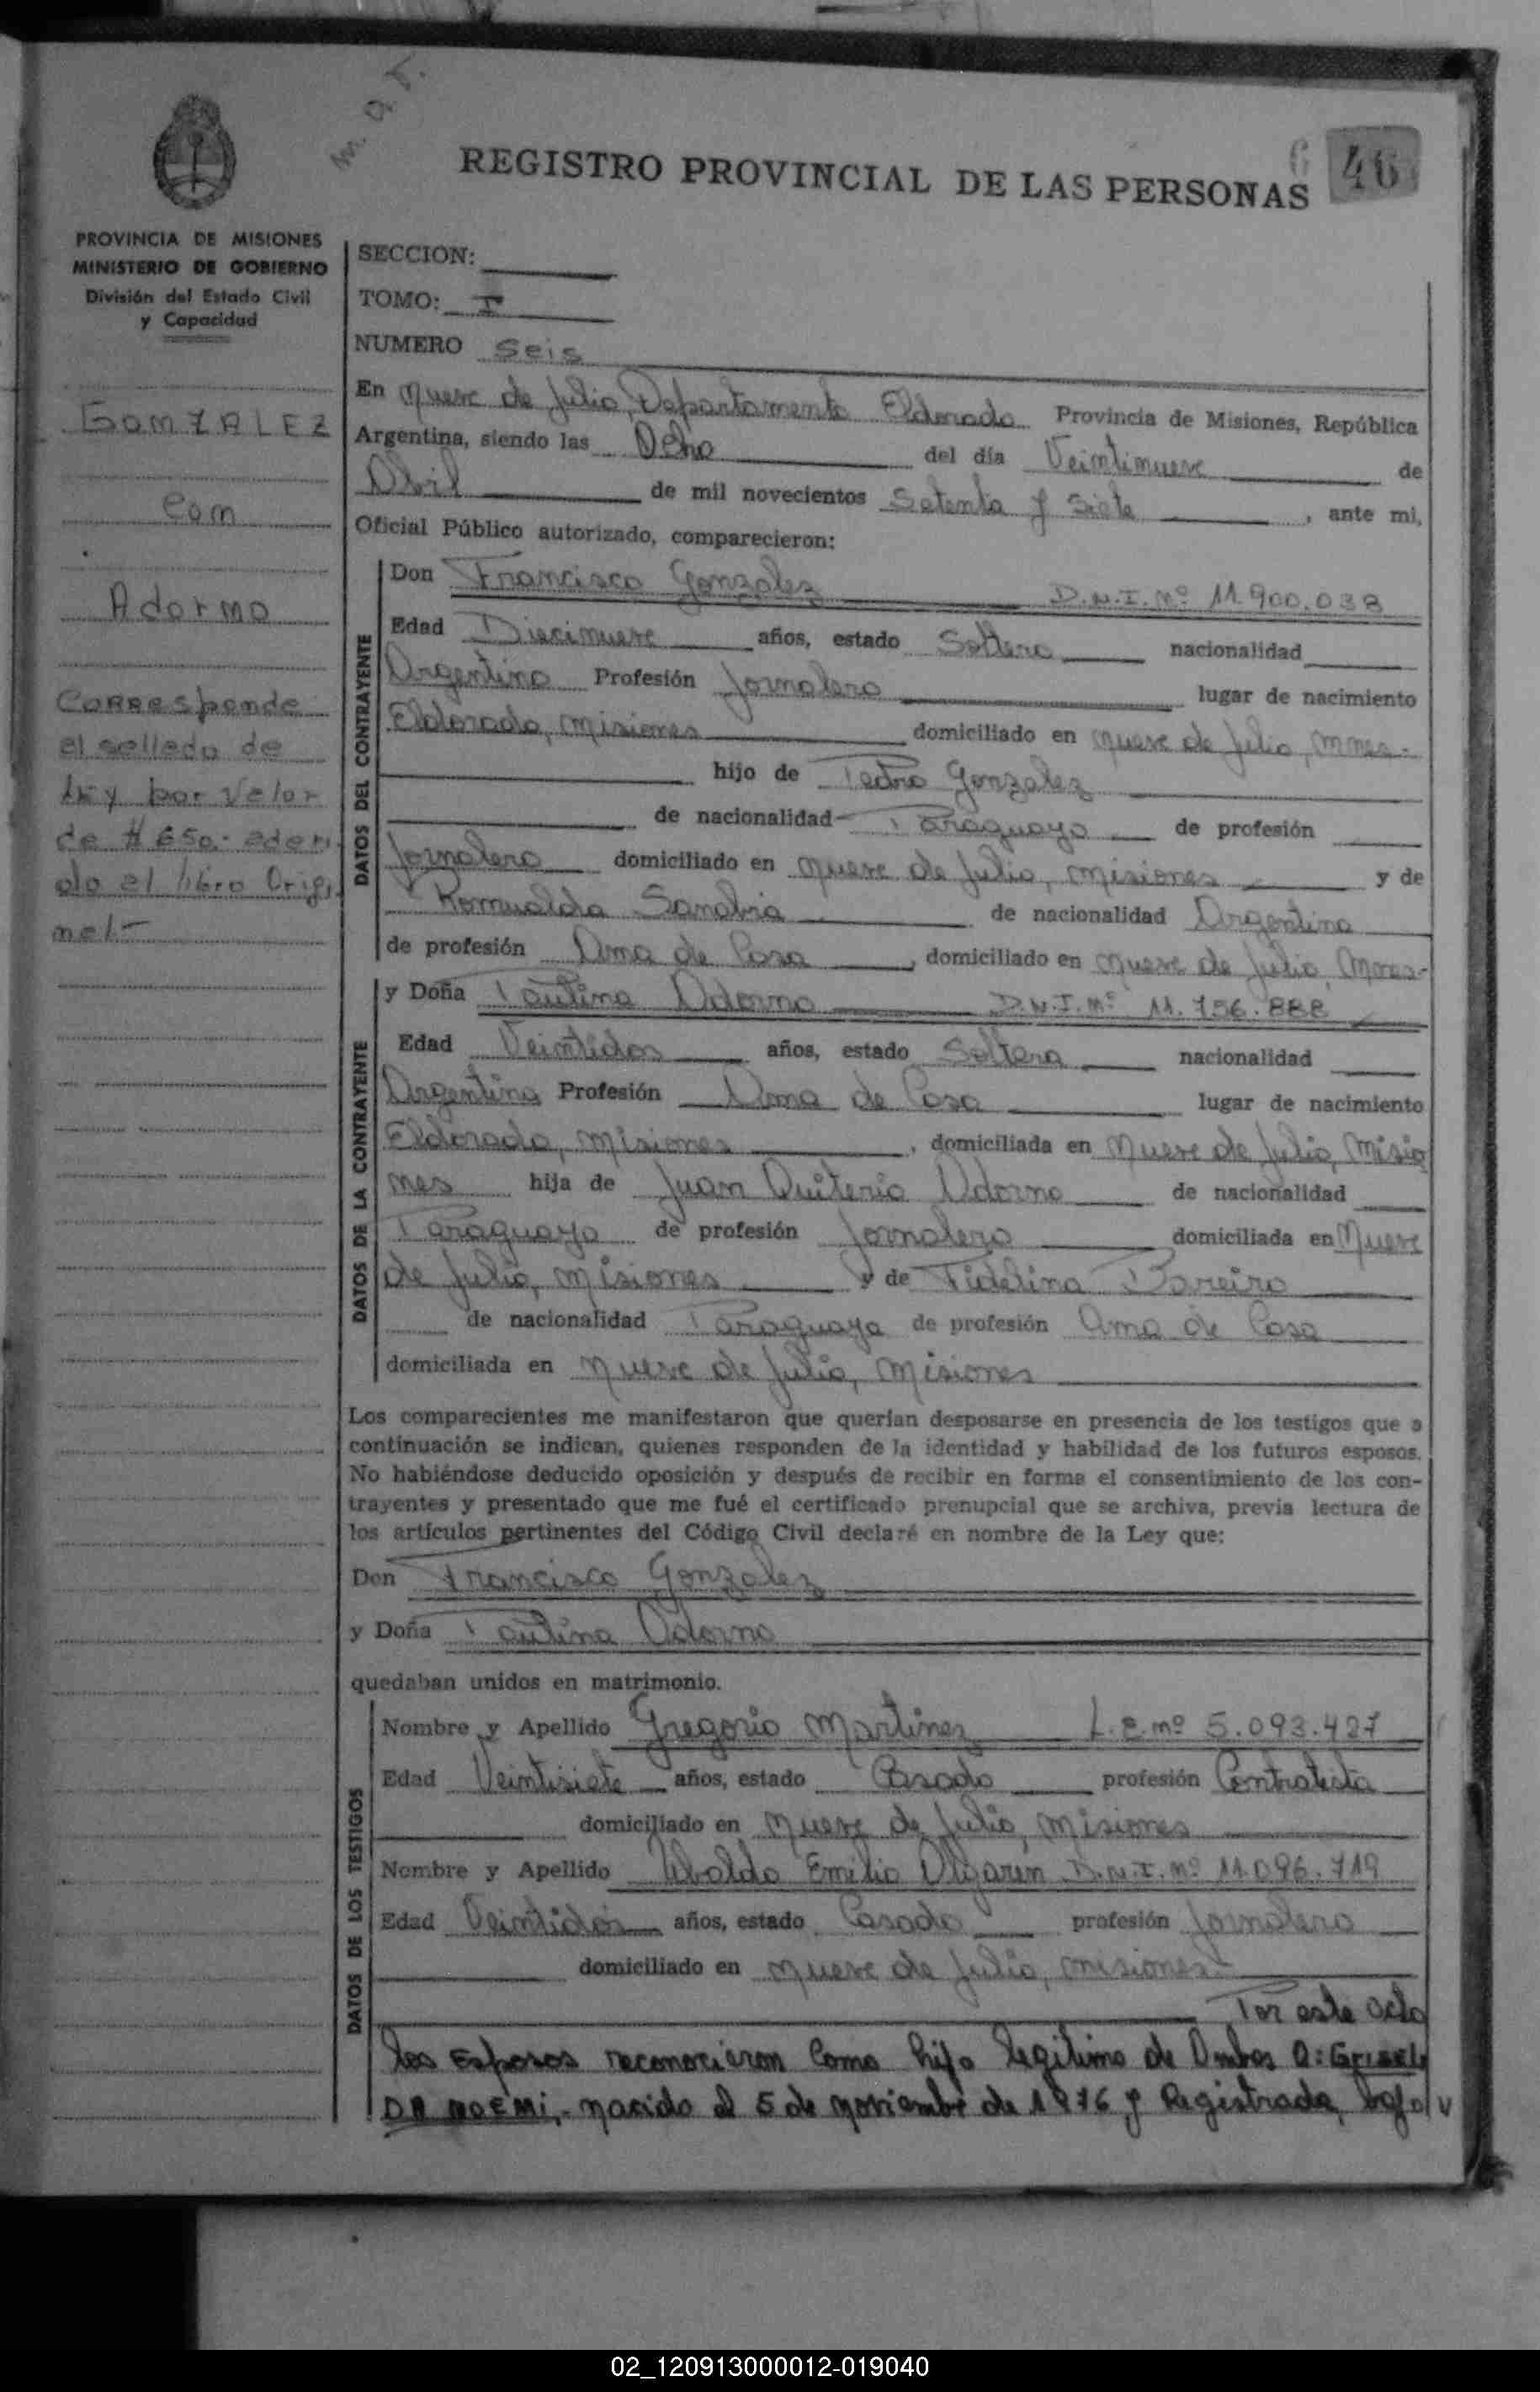 M. 9 T.
REGISTRO PROVINCIAL DE LAS PERSONAS
6 46
PROVINCIA DE MISIONES
MINISTERIO DE GOBIERNO
División del Estado Civil
y Capacidad
GONZALEZ
Con
Adorno
Corresponde
el sellado de
Ley por Valor
de $ 650.- aderi
do el libro Origi
nal.-
SECCION:
TOMO: I
NUMERO Seis
En Nueve de Julio, Departamento Eldorado Provincia de Misiones, República
Argentina, siendo las Ocho del día Veintinueve de
Abril de mil novecientos Setenta y Siete, ante mi,
Oficial Público autorizado, comparecieron:
DATOS DEL CONTRAYENTE
Don Francisco Gonzalez D.N.I. Nº 11.900.038
Edad Diecinueve años, estado Soltero nacionalidad
Argentino Profesión Jornalero lugar de nacimiento
Eldorado, Misiones domiciliado en Nueve de Julio, Mnes.-
hijo de Pedro Gonzalez
de nacionalidad Paraguayo de profesión
Jornalero domiciliado en Nueve de Julio, Misiones y de
Romualda Sanabria de nacionalidad Argentina
de profesión Ama de Casa, domiciliado en Nueve de Julio, Mnes-
DATOS DE LA CONTRAYENTE
y Doña Paulina Adorno D.N.I. Nº 11.756.888
Edad Veintidos años, estado Soltera nacionalidad
Argentina Profesión Ama de Casa lugar de nacimiento
Eldorado, Misiones, domiciliada en Nueve de Julio, Misio
nes hija de Juan Quiterio Adorno de nacionalidad
Paraguayo de profesión Jornalero domiciliada en Nueve
de Julio, Misiones y de Fidelina Bareiro
de nacionalidad Paraguaya de profesión Ama de Casa
domiciliada en Nueve de Julio, Misiones
Los comparecientes me manifestaron que querían desposarse en presencia de los testigos que a
continuación se indican, quienes responden de la identidad y habilidad de los futuros esposos.
No habiéndose deducido oposición y después de recibir en forma el consentimiento de los con-
trayentes y presentado que me fué el certificado prenupcial que se archiva, previa lectura de
los artículos pertinentes del Código Civil declaré en nombre de la Ley que:
Don Francisco Gonzalez
y Doña Paulina Adorno
quedaban unidos en matrimonio.
DATOS DE LOS TESTIGOS
Nombre y Apellido Gregorio Martinez L.E. Nº 5.093.427
Edad Veintisiete años, estado Casado profesión Contratista
domiciliado en Nueve de Julio, Misiones
Nombre y Apellido Ubaldo Emilio Olgarin D.N.I. Nº 11.096.719
Edad Veintidos años, estado Casado profesión Jornalero
domiciliado en Nueve de Julio, Misiones
Por este Acto
los Esposos reconocieron Como hijo legitimo de Ambos A: GRISEL
DA NOEMI,- nacido el 5 de Noviembre de 1976 y Registrada, bajo
02_120913000012-019040